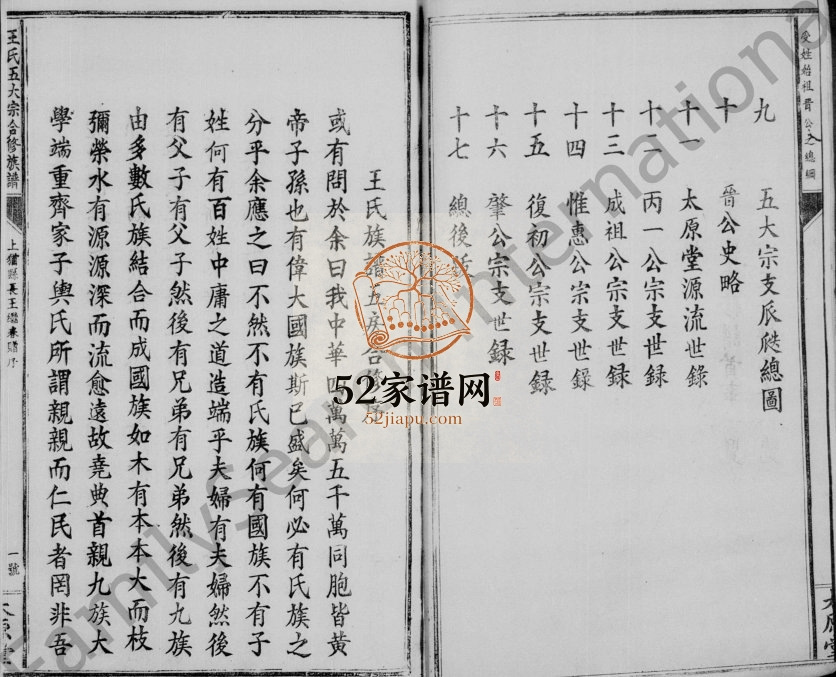 受姓始祖晋公之總綱
九 五大宗支派衍總圖
十 晉公史略
十一 太原堂源流世錄
十二 丙一公宗支世録
十三 成祖公宗支世録
十四 惟惠公宗支世録
十五 復初公宗支世録
十六 肇公宗支世録
十七 總後
太原堂
王氏族譜五房合修序
或有問於余曰我中華四萬萬五千萬同胞皆黃
帝子孫也有偉大國族斯已盛矣何必有氏族之
分乎余應之曰不然不有氏族何有國族不有子
姓何有百姓中庸之道造端乎夫婦有夫婦然後
有父子有父子然後有兄弟有兄弟然後有九族
由多數氏族結合而成國族如木有本本大而枝
彌榮水有源源深而流愈遠故堯典首親九族大
學端重齊家子輿氏所謂親親而仁民者罔非吾
王氏五大宗合修族譜
上猶縣長王繼春贈序
一號
太原堂
52家谱网
52jiapu.com
FamilySearch International